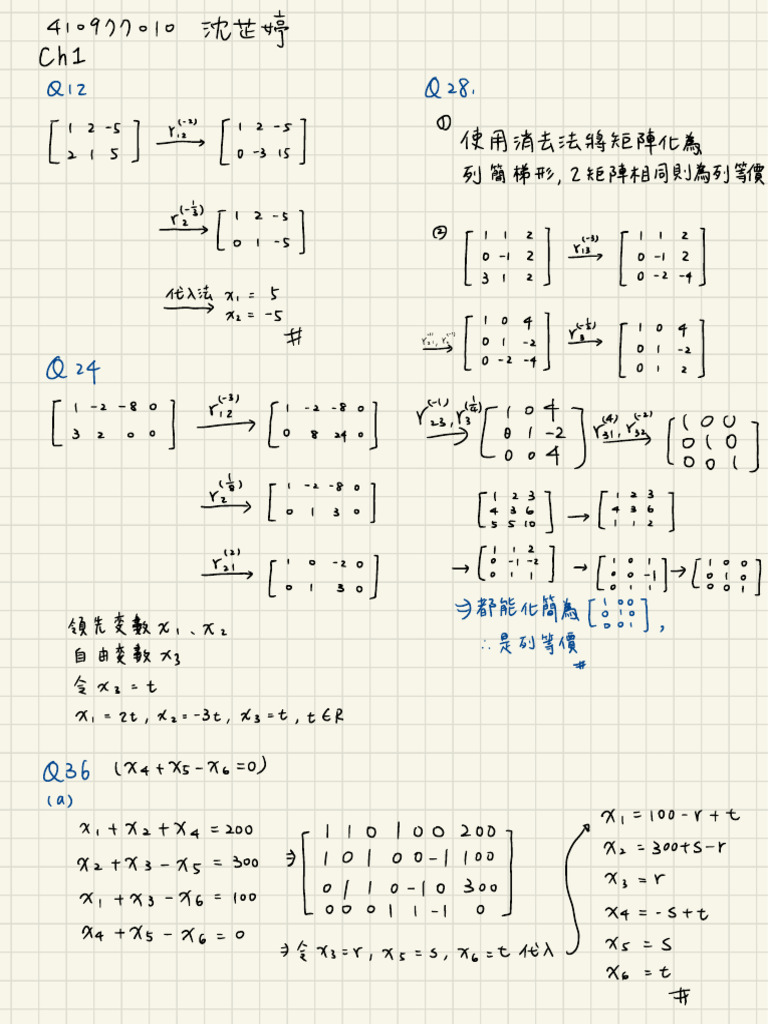 410977010 沈芷婷
Ch1
Q12
[1 2 -5
2 1 5] r12^(-2) → [1 2 -5
0 -3 15]
r2^(-1/3) → [1 2 -5
0 1 -5]
代入法 → x1 = 5
x2 = -5
#
Q24
[1 -2 -8 0
3 2 0 0] r12^(-3) → [1 -2 -8 0
0 8 24 0]
r2^(1/8) → [1 -2 -8 0
0 1 3 0]
r21^(2) → [1 0 -2 0
0 1 3 0]
領先變數 x1、x2
自由變數 x3
令 x3 = t
x1 = 2t, x2 = -3t, x3 = t, t∈R
Q28.
① 使用消去法將矩陣化為
列簡梯形, 2矩陣相同則為列等價
② [1 1 2
0 -1 2
3 1 2] r13^(-3) → [1 1 2
0 -1 2
0 -2 -4]
→ [1 0 4
0 1 -2
0 -2 -4] r3^(-1/2) → [1 0 4
0 1 -2
0 1 2]
r23^(-1), r3^(1/4) → [1 0 4
0 1 -2
0 0 4] r31^(4), r32^(-2) → [1 0 0
0 1 0
0 0 1]
[1 2 3
4 3 6
5 5 10] → [1 2 3
4 3 6
1 1 2]
→ [1 1 2
0 -1 -2
0 1 1] → [1 0 1
0 0 -1
0 1 1] → [1 0 0
0 1 0
0 0 1]
⇒ 都能化簡為 [1 0 0
0 1 0
0 0 1],
∴ 是列等價
#
Q36 (x4+x5-x6=0)
(a)
x1+x2+x4=200
x2+x3-x5=300
x1+x3-x6=100
x4+x5-x6=0
⇒ [1 1 0 1 0 0 200
1 0 1 0 0 -1 100
0 1 1 0 -1 0 300
0 0 0 1 1 -1 0]
⇒ 令 x3=r, x5=s, x6=t 代入
x1=100-r+t
x2=300+s-r
x3=r
x4=-s+t
x5=s
x6=t
#